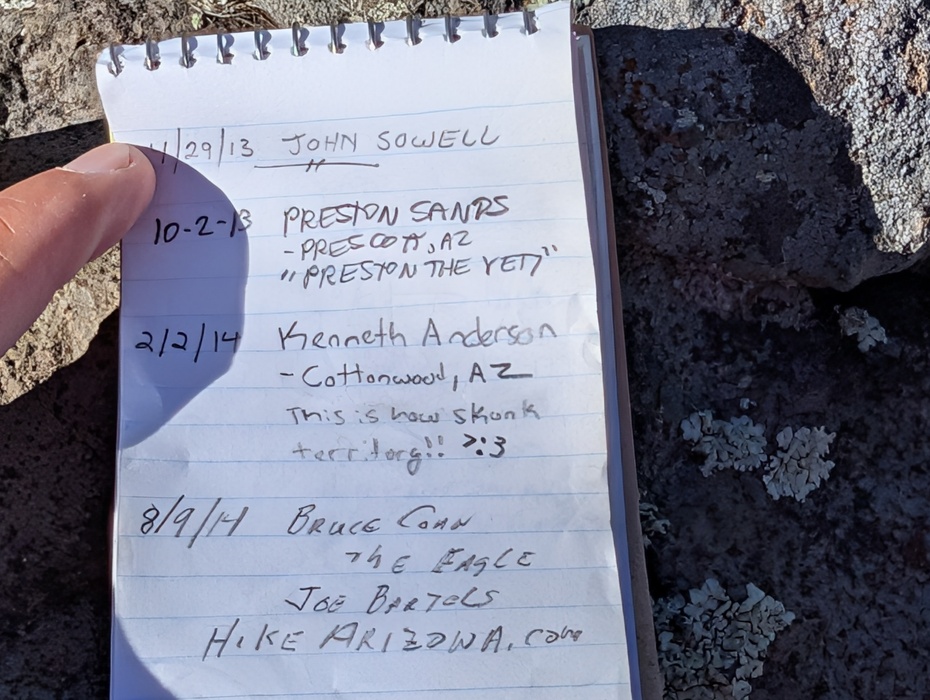 11/29/13 JOHN SOWELL
10-2-13 PRESTON SANDS
-PRESCOTT, AZ
"PRESTON THE YETI"
2/2/14 Kenneth Anderson
- Cottonwood, AZ
This is now skunk
territory!! >:3
8/9/14 BRUCE COHN
THE EAGLE
JOE BARTELS
HIKE ARIZONA.com